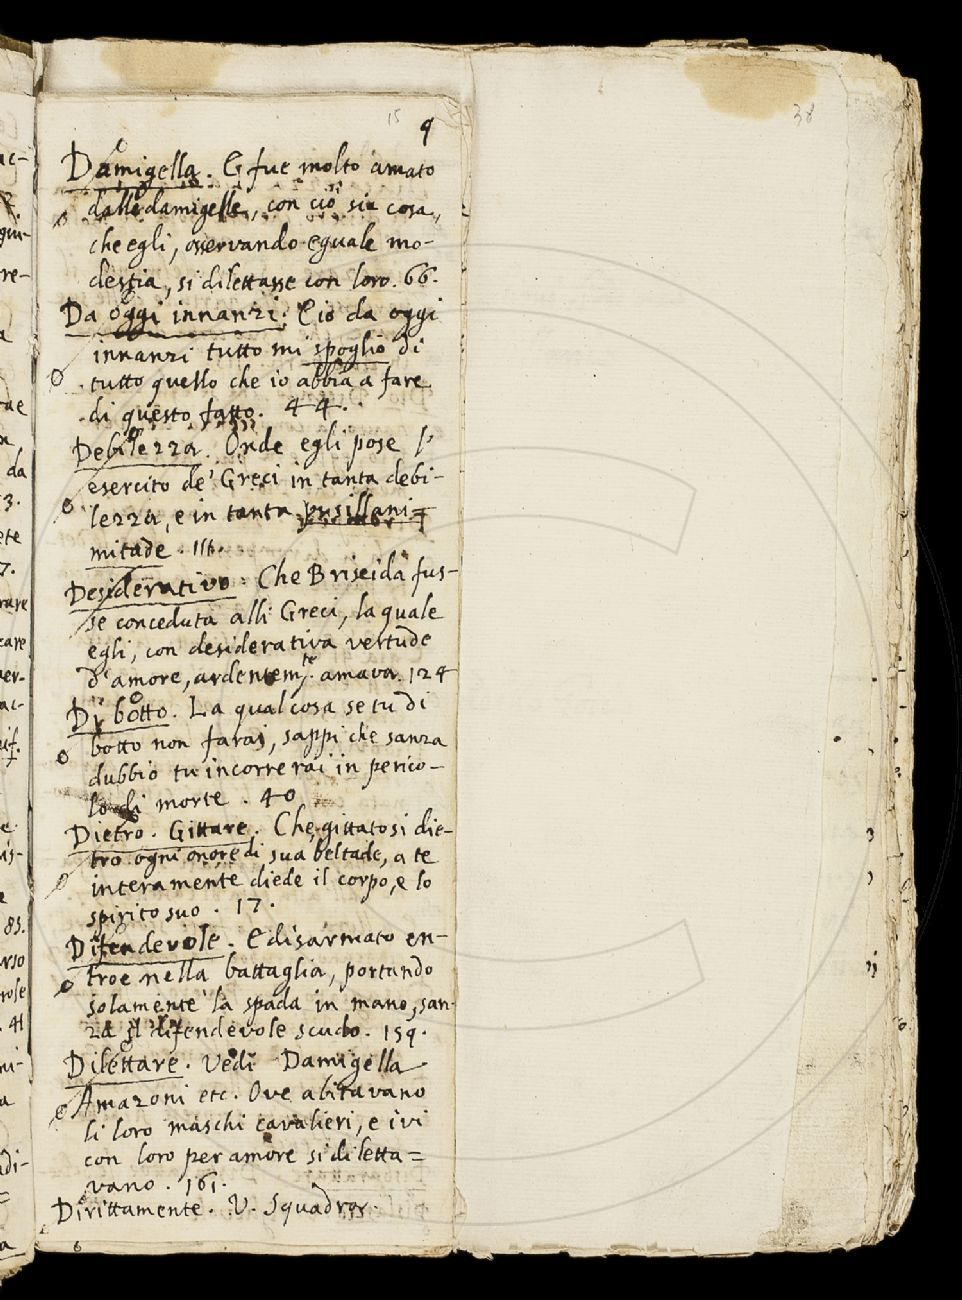 15
9
38
Damigella. E fue molto amato
dalle damigelle, con ciò sia cosa,
che egli, osservando eguale mo-
destia, si dilettasse con loro. 66.
Da oggi innanzi. E io da oggi
innanzi tutto mi spoglio di
tutto quello che io abbia a fare
di questo fatto. 44.
Debilezza. Onde egli pose l'
esercito de' Greci in tanta debi-
lezza, e in tanta pusillani=
mitade. 116.
Desiderativo. Che Briseida fus-
se conceduta alli Greci, la quale
egli, con desiderativa vertude
d'amore, ardentem.te amava. 124
Di botto. La qual cosa se tu di
botto non farai, sappi che sanza
dubbio tu incorrerai in perico-
lo di morte. 40
Dietro. Gittare. Che gittatosi die-
tro ogni onore di sua beltade, a te
interamente diede il corpo, e lo
spirito suo. 17.
Difendevole. E disarmato en-
troe nella battaglia, portando
solamente la spada in mano, san-
za il difendevole scudo. 159.
Dilettare. Vedi Damigella
Amazoni etc. Ove abitavano
li loro maschi cavalieri, e ivi
con loro per amore si diletta=
vano. 161.
Dirittamente. V. Squadrar.